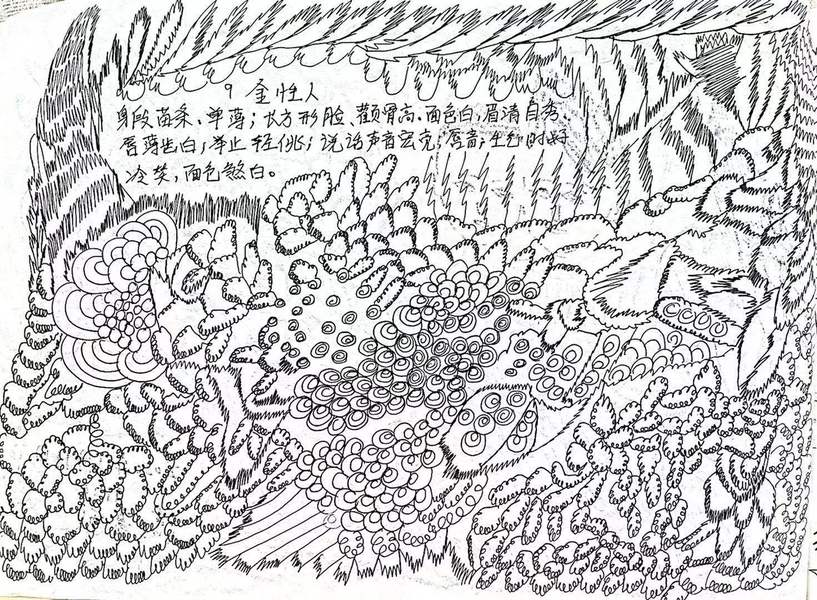 9 金性人
身段苗条、单薄;长方形脸、颧骨高、面色白,眉清目秀、
唇薄齿白;举止轻佻;说话声音宏亮;唇音;生气时好
冷笑,面色煞白。